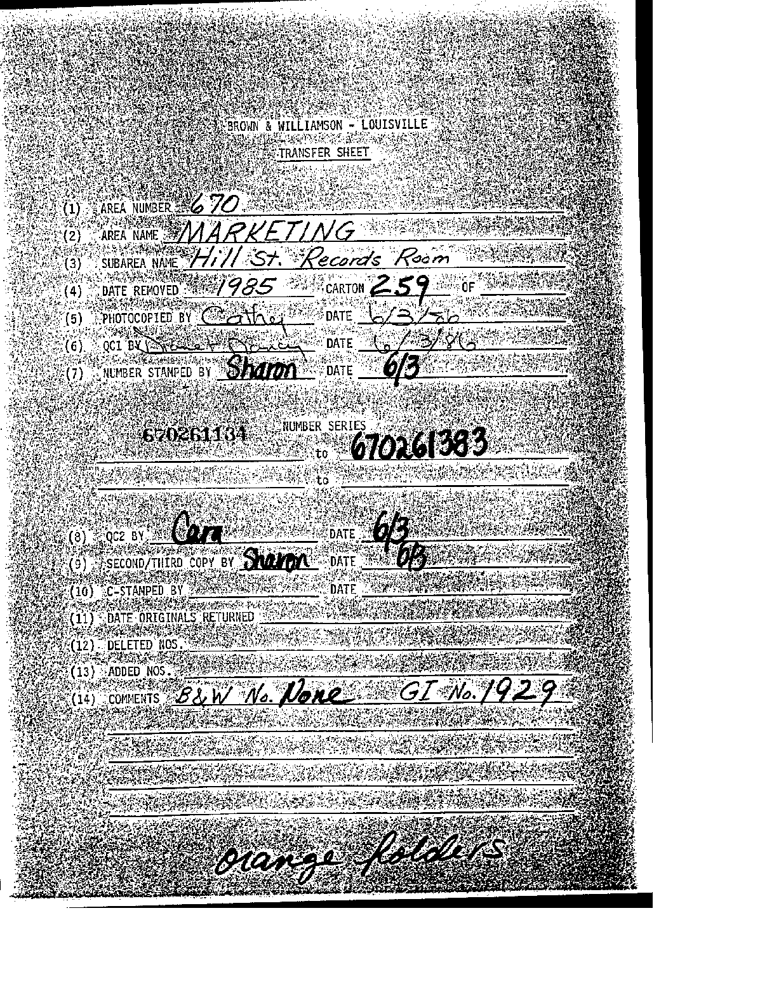 BROWN & WILLIAMSON - LOUISVILLE
TRANSFER SHEET
(1) AREA NUMBER 670
(2) AREA NAME MARKETING
(3) SUBAREA NAME Hill St. Records Room
(4) DATE REMOVED 1985 CARTON 259 OF
(5) PHOTOCOPIED BY Cathy DATE 6/3/86
(6) QC1 BY DATE 6/3/86
(7) NUMBER STAMPED BY Sharon DATE 6/3
NUMBER SERIES
670261134 to 670261383
to
(8) QC2 BY Cara DATE 6/3
(9) SECOND/THIRD COPY BY Sharon DATE 6/3
(10) C-STAMPED BY DATE
(11) DATE ORIGINALS RETURNED
(12) DELETED NOS.
(13) ADDED NOS.
(14) COMMENTS B&W No. None GI No. 1929
orange folders